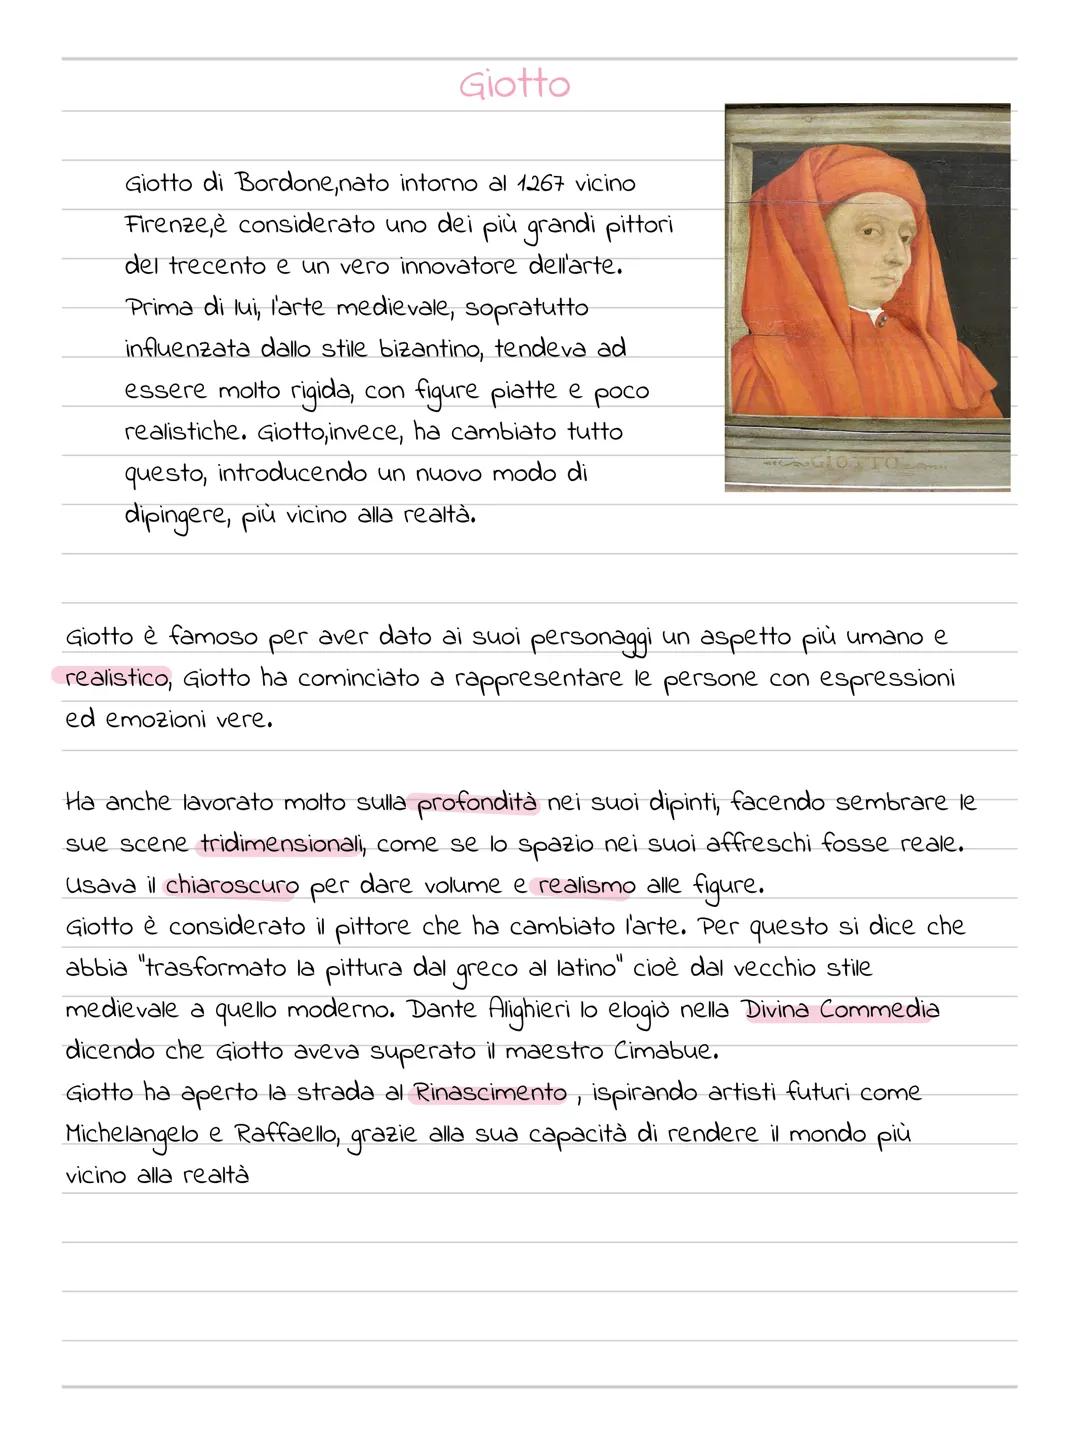 Giotto
Giotto di Bordone,nato intorno al 1267 vicino
Firenze,è considerato uno dei più grandi pittori
del trecento e un vero innovatore dell'arte.
Prima di lui, l'arte medievale, sopratutto
influenzata dallo stile bizantino, tendeva ad
essere molto rigida, con figure piatte e poco
realistiche. Giotto,invece, ha cambiato tutto
questo, introducendo un nuovo modo di
dipingere, più vicino alla realtà.
GIOTTO
Giotto è famoso per aver dato ai suoi personaggi un aspetto più umano e
realistico, Giotto ha cominciato a rappresentare le persone con espressioni
ed emozioni vere.
Ha anche lavorato molto sulla profondità nei suoi dipinti, facendo sembrare le
sue scene tridimensionali, come se lo spazio nei suoi affreschi fosse reale.
Usava il chiaroscuro per dare volume e realismo alle figure.
Giotto è considerato il pittore che ha cambiato l'arte. Per questo si dice che
abbia "trasformato la pittura dal greco al latino" cioè dal vecchio stile
medievale a quello moderno. Dante Alighieri lo elogiò nella Divina Commedia
dicendo che Giotto aveva superato il maestro Cimabue.
Giotto ha aperto la strada al Rinascimento , ispirando artisti futuri come
Michelangelo e Raffaello, grazie alla sua capacità di rendere il mondo più
vicino alla realtà